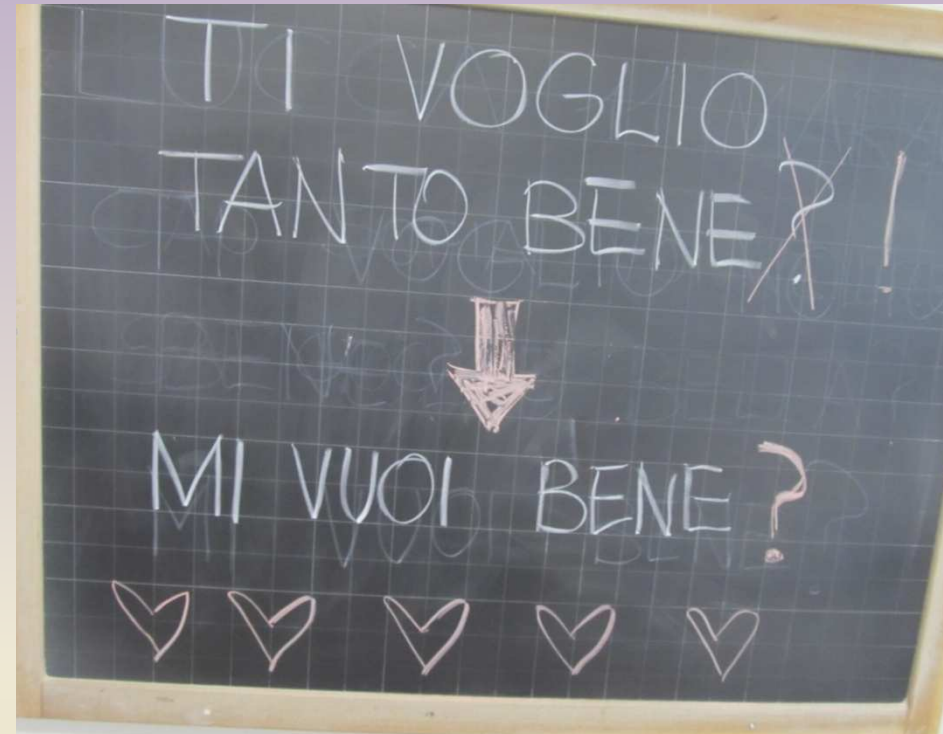 TI VOGLIO
TANTO BENE? !
MI VUOI BENE?